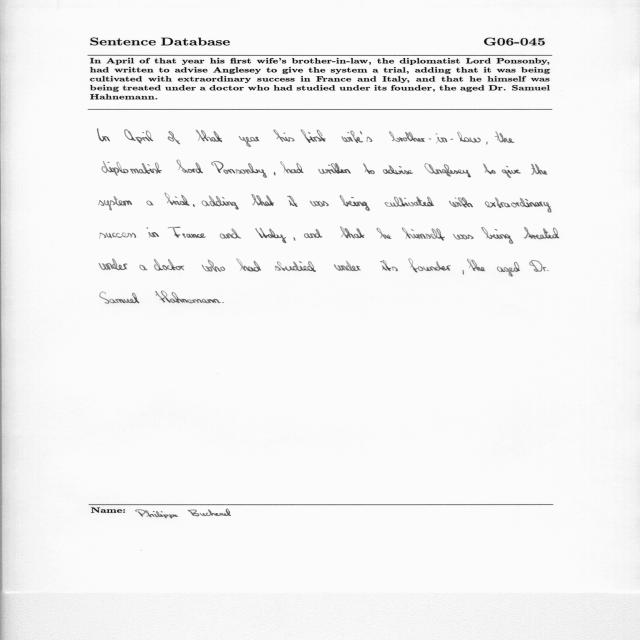 Sentence Database G06-045
In April of that year his first wife's brother-in-law, the diplomatist Lord Ponsonby,
had written to advise Anglesey to give the system a trial, adding that it was being
cultivated with extraordinary success in France and Italy, and that he himself was
being treated under a doctor who had studied under its founder, the aged Dr. Samuel
Hahnemann.
In April of that year his first wife's brother-in-law, the
diplomatist Lord Ponsonby, had written to advise Anglesey to give the
system a trial, adding that it was being cultivated with extraordinary
success in France and Italy, and that he himself was being treated
under a doctor who had studied under its founder, the aged Dr.
Samuel Hahnemann.
Name: Philippe